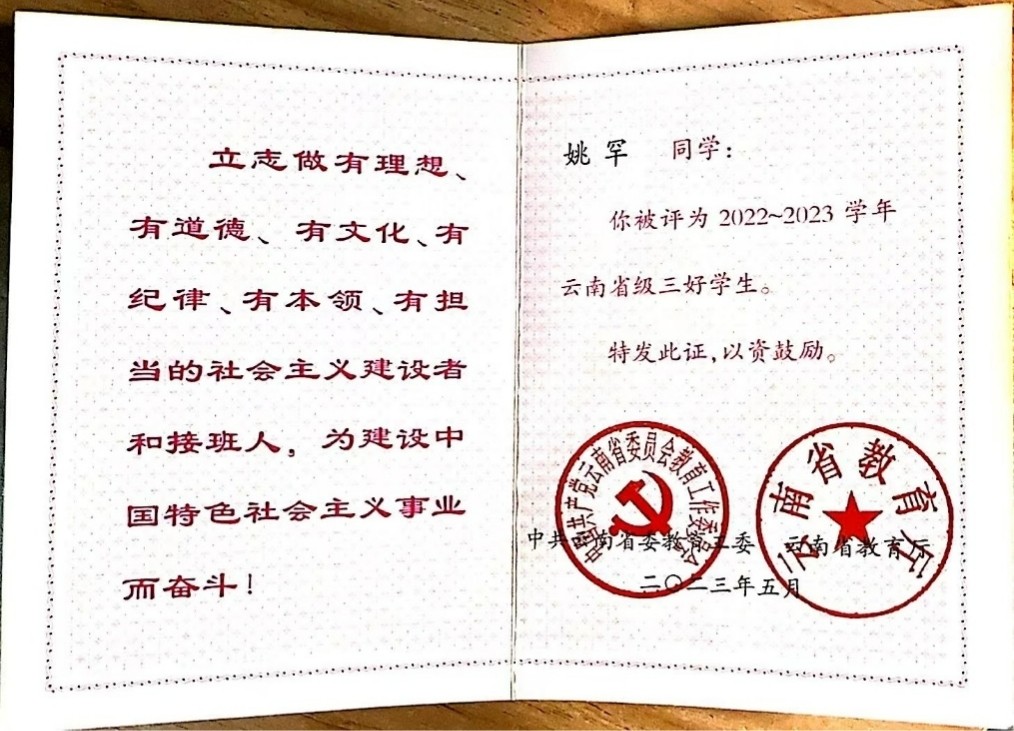 立志做有理想、
有道德、有文化、有
纪律、有本领、有担
当的社会主义建设者
和接班人，为建设中
国特色社会主义事业
而奋斗！
姚罕 同学：
你被评为 2022~2023 学年
云南省级三好学生。
特发此证，以资鼓励。
中国共产党云南省委员会教育工作委员会
云南省教育厅
中共云南省委教育工委 云南省教育厅
二〇二三年五月